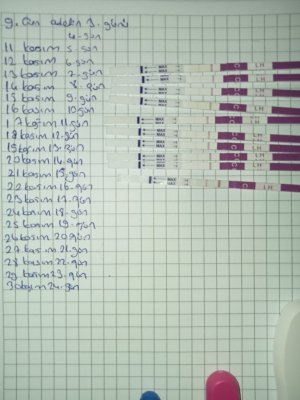 9. Gün adetin 3. günü
4. gün
11 kasım 5. gün
12 kasım 6. gün
13 kasım 7. gün
14 kasım 8. gün
15 kasım 9. gün
16 kasım 10. gün
17 kasım 11. gün
18 kasım 12. gün
19 kasım 13. gün
20 kasım 14. gün
21 kasım 15. gün
22 kasım 16. gün
23 kasım 17. gün
24 kasım 18. gün
25 kasım 19. gün
26 kasım 20 gün
27 kasım 21. gün
28 kasım 22. gün
29 kasım 23. gün
30 kasım 24. gün
MAX
MAX
LH
MAX
MAX
LH
MAX
MAX
LH
MAX
MAX
LH
MAX
MAX
LH